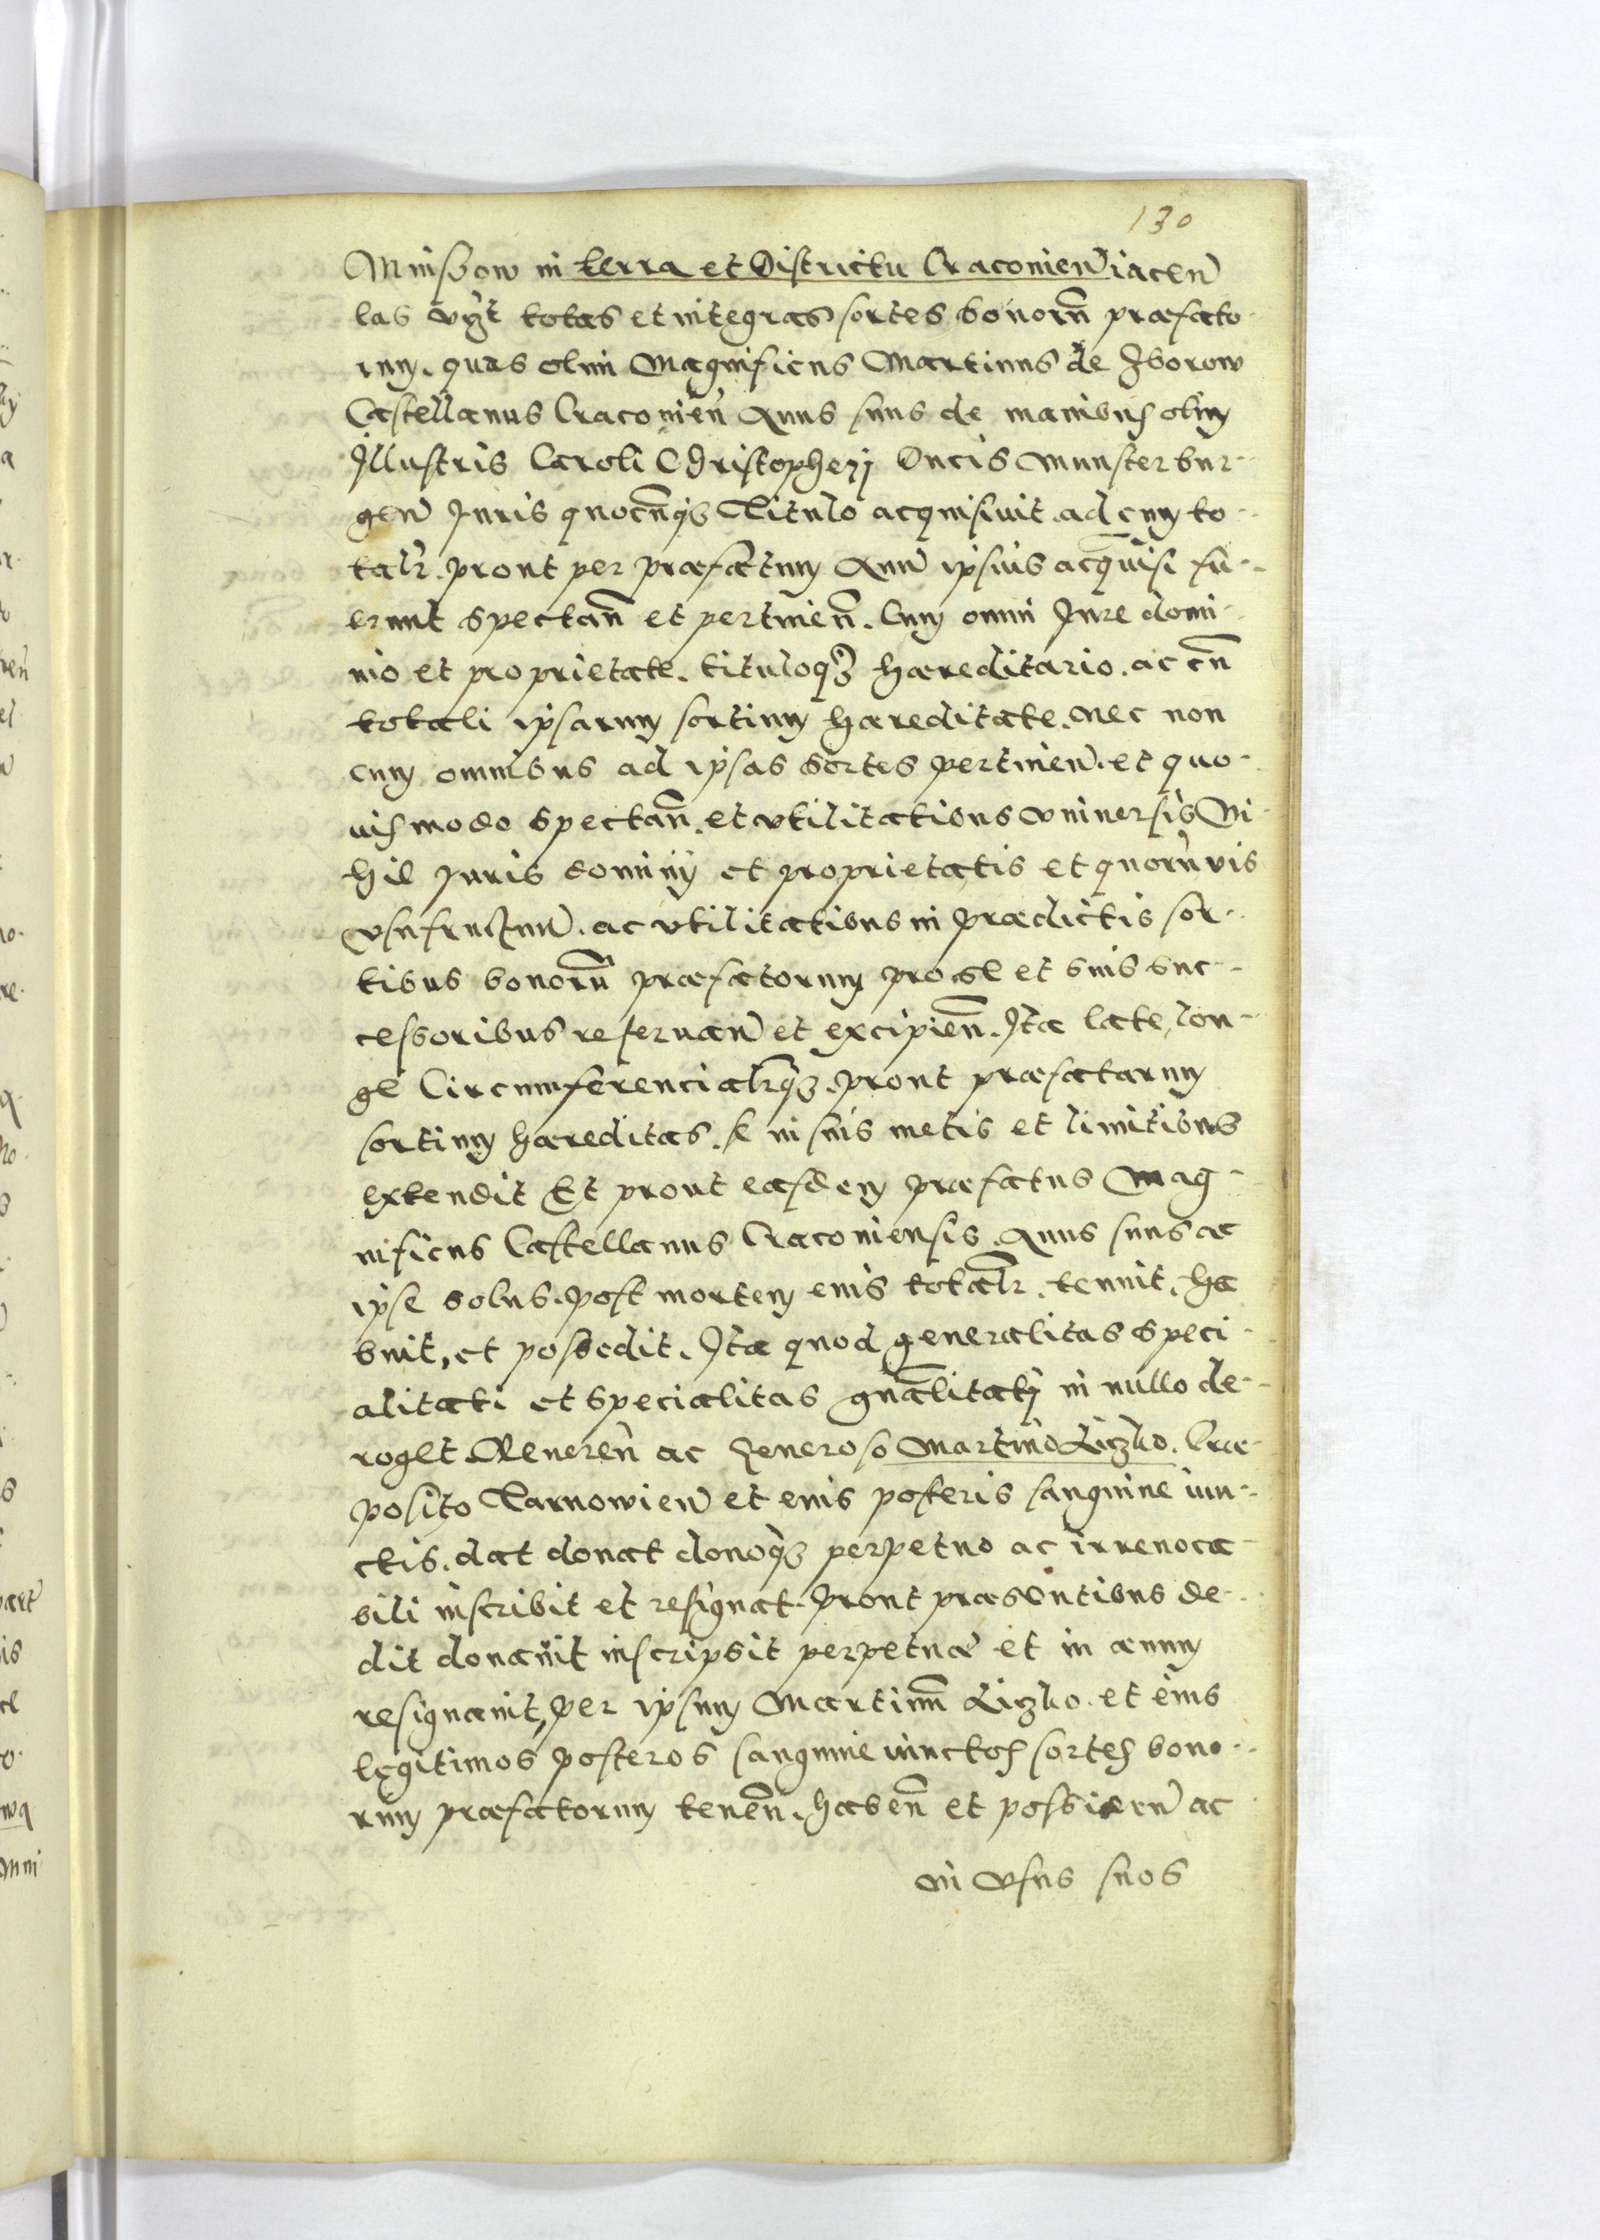 130
in terra et Districtu Cracovien iacen
las totas et integras sortes bonorum præfato-
rum. quas olim Magnificus Martinus de Zborow
Castellanus Cracovien Auus suus de manibus olim
Illustris Caroli Christopheri Ducis Munsterbur-
gen Juris quocunq3 Titulo acquisiuit. ad eum to-
talr. prout per præfatum Auu ipsius acquisi fu-
erunt spectan et pertinen. Cum omni Jure domi-
nio et proprietate. tituloq3 hæreditario. ac cu
totali ipsarum sortium hæreditate. nec non
cum omnibus ad ipsas sortes pertinen. et quo-
uis modo spectan. et vtilitatibus vniuersis Ni-
hil Juris dominij et proprietatis et quoruvis
vsufructuu. ac vtilitatibus in prædictis sor-
tibus bonoru præfatorum pro se et suis suc-
cessoribus reseruan et excipien. Ita late, lon-
ge Circumferencialrq3. prout præfatarum
sortium hæreditas. se in suis metis et limitibus
extendit Et prout easdem præfatus Mag-
nificus Castellanus Cracouiensis. Auus suus ac
ipse solus. post mortem eius totalr. tenuit. ha
buit, et possedit. Ita quod generalitas speci-
alitati et specialitas gnalitati in nullo de-
roget Veneren ac Generoso Martino Liczko. Præ-
posito Tarnowien et eius posteris sanguine iun-
ctis. dat donat donoq3 perpetuo ac irreuoca-
bili inscribit et resignat. prout præsentibus de-
dit donauit inscripsit perpetuæ et in æuum
resignauit, per ipsum Martinu Liczko. et eius
legitimos posteros sanguine iunctos sortes bono-
rum præfatorum tenen. haben et possiden ac
in vsus suos